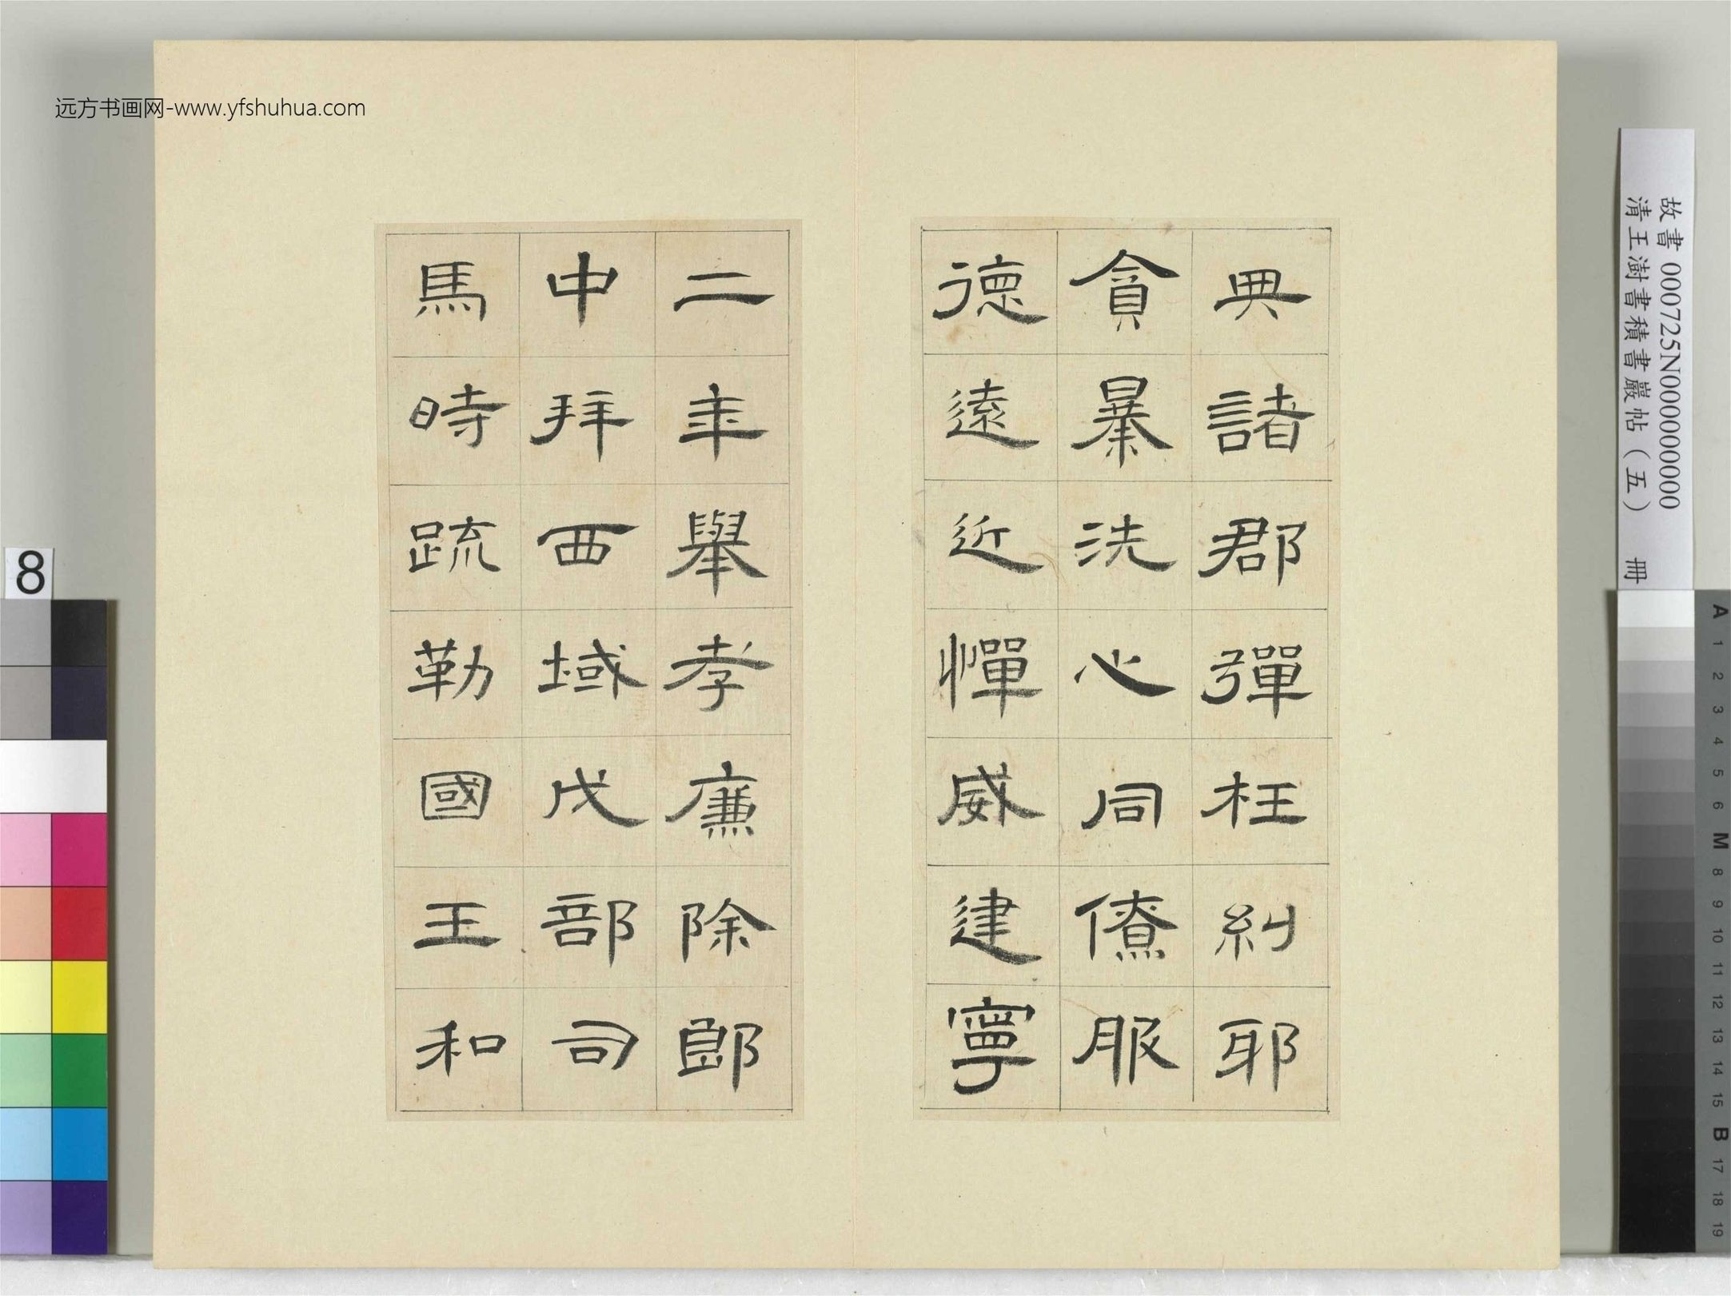 远方书画网-www.yfshuhua.com
典諸郡彈枉糾耶
貪暴洗心同僚服
德遠近憚威建寧
二年舉孝廉除郎
中拜西域戊部司
馬時疏勒國王和
故書 000725N000000000
清王澍書積書巖帖（五） 冊
8
A
1
2
3
4
5
6
M
8
9
10
11
12
13
14
15
B
17
18
19